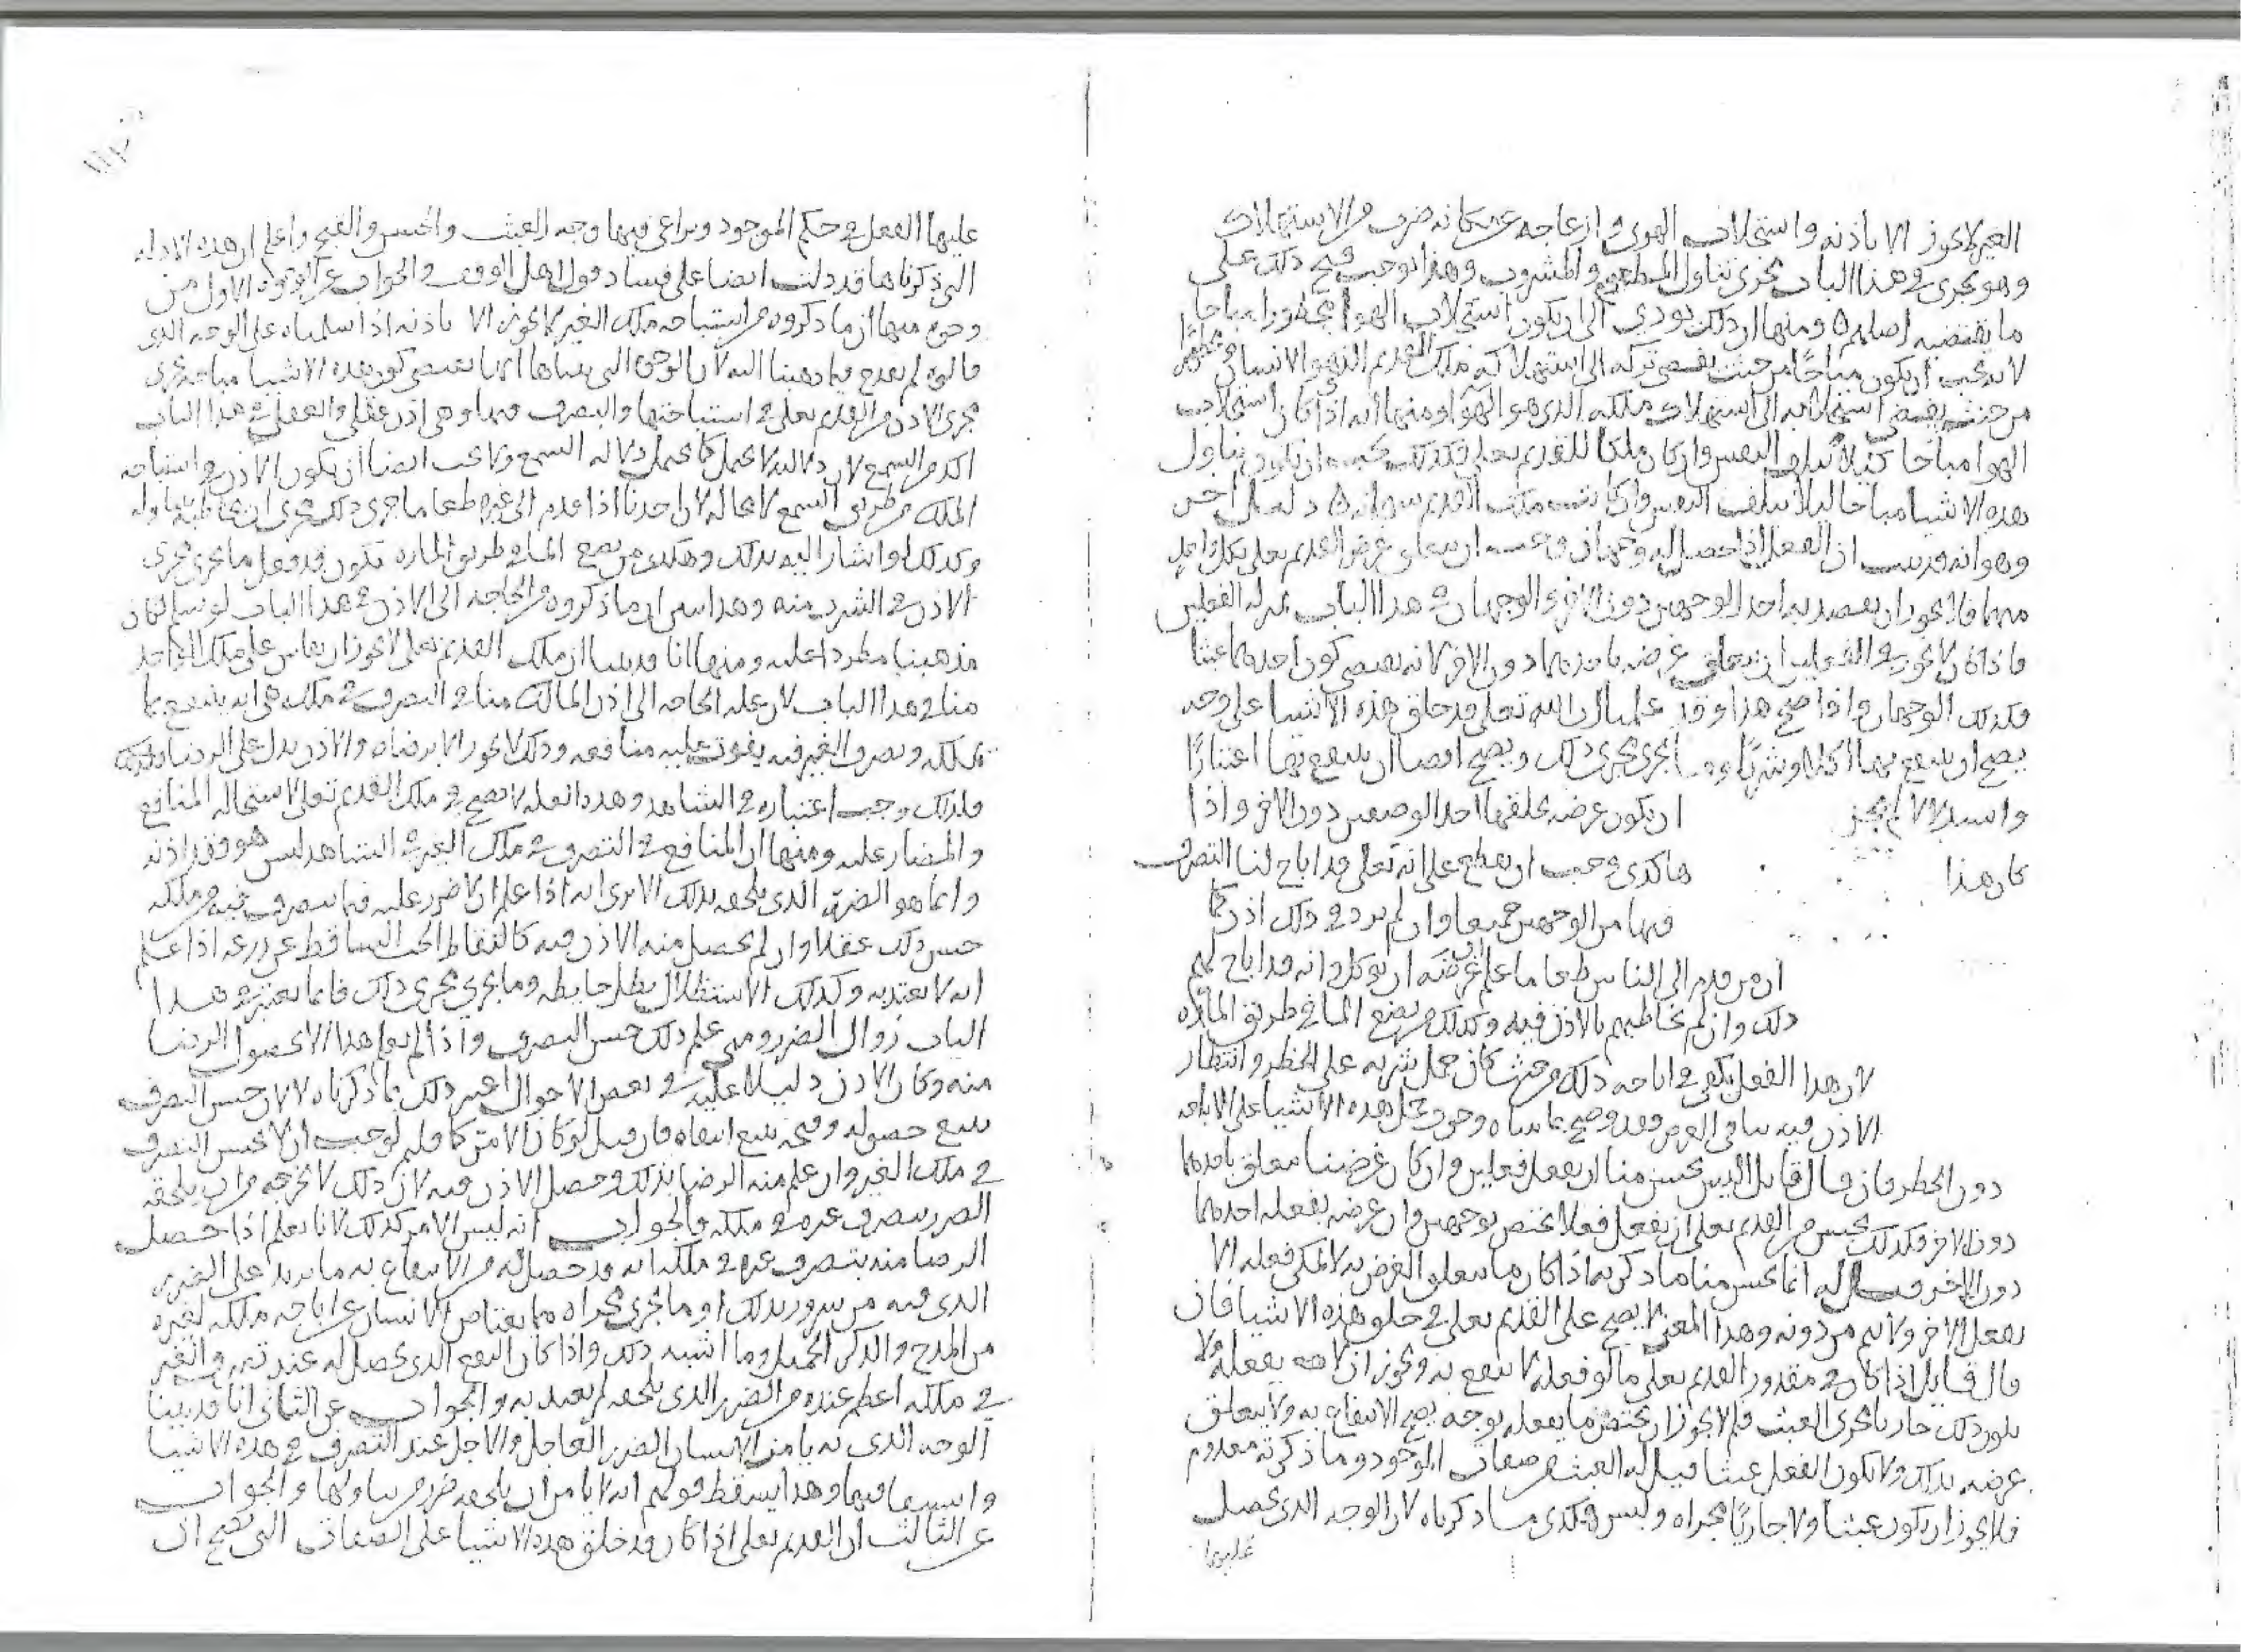 الغير لا يجوز الا باذنه واستجلاب الهوى وازعاجه عن مكانه ضرب من الاستهلاك
وهو يجرى في هذا الباب مجرى تناول المطعوم والمشروب وهذا يوجب قبح ذلك على
ما يقتضيه اصلهم ومنها ان ذلك يودي الى ان يكون استجلاب الهوا محظورا مباحا
لانه يجب ان يكون مباحًا من حيث يفضى تركه الى استهلاكه ملك القديم الذي هو الانسان ومحظورًا
من حيث يفضى استجلابه الى استهلاك ملكه الذى هو الهوا ومنها انه اذا كان استجلاب
الهوا مباحا كيلا تتلف النفس وان كان ملكا للقديم تعلى فكذلك يجب ان يكون تناول
هذه الاشيا مباحا ليلا تتلف النفس وان كانت ملك القديم سبحانه دليل اخر
وهو انه قد ثبت ان الفعل اذا حصل له وجهان وجب ان يتعلق غرض القديم تعلى بكل واحد
منهما فلا يجوز ان يقصد به احد الوجهين دون الاخر والوجهان في هذا الباب بمنزلة الفعلين
فاذا كان لا يجوز في الفعلين ان يتعلق غرضه باحدهما دون الاخر لانه يقتضى كون احدهما عبثا
فكذلك الوجهان واذا صح هذا وقد علمنا ان الله تعلى قد خلق هذه الاشيا على وجه
يصح ان ينتفع بها اكلا وشربًا وما يجرى مجرى ذلك ويصح ايضا ان ينتفع بها اعتبارًا
واستدلالا لم يجز ان يكون غرضه بخلقها احد الوصفين دون الاخر واذا
كان هذا هاكذى وجب ان يقطع على انه تعلى قد اباح لنا التصرف
فيها من الوجهين جميعا وان لم يرد في ذلك اذن كما
ان من قدم الى الناس طعاما علم ان غرضه ان يوكل وانه قد اباح لهم
ذلك وان لم يخاطبهم بالاذن فيه وكذلك من يضع الما في طريق المارة
لان هذا الفعل يكفي في اباحه ذلك من حيث كان حمل شربه على الحظر وانتظار
الاذن فيه ينافي الغرض فقد وضح بما بيناه وجوب حمل هذه الاشيا على الاباحه
دون الحظر فان قال قايل اليس يحسن منا ان يفعل فعلين وان كان غرضنا معلق باحدهما
دون الاخر فكذلك يحسن من القديم تعلى ان يفعل فعلا يختص بوجهين وان غرضه بفعله احدهما
دون الاخر قيل له انما يحسن منا ما ذكرته اذا كان ما يتعلق الغرض به لا يمكن فعله الا
بفعل الاخر ولا يتم من دونه وهذا المعنى لا يصح على القديم تعلى في خلق هذه الاشيا فان
قال قايل اذا كان في مقدور القديم تعلى ما لو فعله لا ينتفع به ويجوز ان لا يفعله ولا
يكون ذلك جاريا مجرى العبث فلم لا يجوز ان يختص ما يفعله بوجه يصح الانتفاع به ولا يتعلق
غرضه بذلك ولا يكون الفعل عبثا قيل له العبث من صفات الموجود وما ذكرته معدوم
فلا يجوز ان يكون عبثا ولا جاريًا مجراه وليس هكذى ما ذكرناه لان الوجه الذى يحصل
عليها
عليها الفعل في حكم الموجود ويراعى فيها وجه العبث والحسن والقبح واعلم ان هذه الادله
التي ذكرناها قد دلت ايضا على فساد قول اهل الوقف والجواب عن الوجوه الاول من
وجوه منها ان ما ذكروه من استباحه ملك الغير لا يجوز الا باذنه اذا سلمناه على الوجه الذى
قالوه لم يقدح فيما ذهبنا اليه لان الوجوه التى بيناها انها تقتضى كون هذه الاشيا مباحه تجرى
مجرى الاذن من القديم تعلى في استباحتها والتصرف فيها وهى اذن عقلى والعقل في هذا الباب
اكد من السمع لان دلالته لا تحتمل كما تحتمل دلاله السمع ولا يجب ايضا ان يكون الاذن في استباحه
الملك من طريق السمع لا محاله لان احدنا اذا قدم الى غيره طعاما جرى ذلك مجرى ان يخاطبه بتناوله
وكذلك لو اشار اليه بذلك وهكذى من يضع الما في طريق المارة يكون قد فعل ما يجرى مجرى
الاذن في الشرب منه وهذا يبين ان ما ذكروه من الحاجه الى الاذن في هذا الباب لو سلم لكان
مذهبنا مطردا عليه ومنها انا قد بينا ان ملك القديم تعلى لا يجوز ان يقاس على ملك الواحد
منا في هذا الباب لان عله الحاجه الى اذن المالك منا في التصرف في ملكه هى انه ينتفع بما
يملكه وتصرف الغير فيه يفوت عليه منافعه وذلك لا يجوز الا برضاه والاذن يدل على الرضا بذلك
فلذلك وجب اعتباره في الشاهد وهذه العله لا تصح في ملك القديم تعلى لاستحاله المنافع
والمضار عليه ومنها ان المنافع في التصرف في ملك الغير في الشاهد ليس هو فقد اذنه
وانما هو الضرر الذى يلحقه بذلك الا ترى انه اذا علم ان لا ضرر عليه فيما يتصرف فيه من ملكه
حسن ذلك عقلا وان لم يحصل منه الاذن فيه كالتقاط الحب الساقط عن زرعه اذا علم
انه لا يعتد به وكذلك الاستظلال بظل حايطه وما يجرى مجرى ذلك فانما يعتبر في هذا
الباب زوال الضرر ومتى علم ذلك حسن التصرف واذا لم يعلم هذا الا بحصول الرضا
منه وكان الاذن دليلا عليه في بعض الاحوال اعتبر ذلك بما ذكرناه لا لان حسن التصرف
يتبع حصوله وقبحه يتبع انتفاه فان قيل لو كان الامر كما قلتم لوجب ان لا يحسن التصرف
في ملك الغير وان علم منه الرضا بذلك وحصل الاذن فيه لان ذلك لا يخرجه من ان يلحقه
الضرر بتصرف غيره في ملكه والجواب انه ليس الامر كذلك لانا نعلم اذا حصل
الرضا منه بتصرف غيره في ملكه انه قد حصل له من الانتفاع به ما يزيد على الضرر
الذى فيه من سرور بذلك او ما يجرى مجراه مما يعتاض الانسان عن اباحه ملكه لغيره
من المدح والذكر الجميل وما اشبه ذلك واذا كان النفع الذى يحصل له عند تصرف الغير
في ملكه اعظم عنده من الضرر الذى يلحقه لم يعتد به والجواب عن الثانى انا قد بينا
الوجه الذى به يا من الانسان الضرر العاجل والاجل عند التصرف في هذه الاشيا
وانتفع بها وهذا يسقط قولهم انه لا يامن ان يلحقه ضرر من تناولها والجواب
عن الثالث ان القديم تعلى اذا كان قد خلق هذه الاشيا على الصفات التى يصح ان